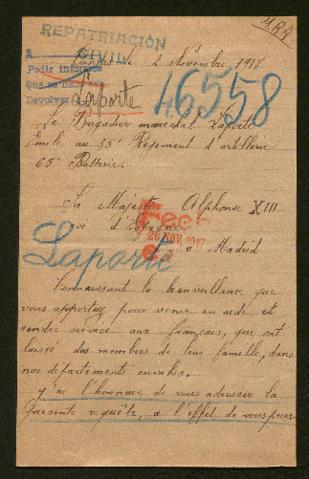 REPATRIACIÓN
CIVIL
A
Pedir informe
Que se
Devolver
Laporte
46558
Vannes le 2 Novembre 1917
Le Brigadier maréchal Laporte
Emile au 35e Régiment d'artillerie
65e Batterie.
Sa Majesté Alphonse XIII
Roi d'Espagne
à Madrid
26 NOV. 1917
Laporte
Connaissant la bienveillance que
vous apportez pour venir en aide, et
rendre services aux français, que ont
laissé des membres de leur famille, dans
nos départements envahis.
j'ai l'honneur de vous adresser la
présente requête, a l'effet de vous prier